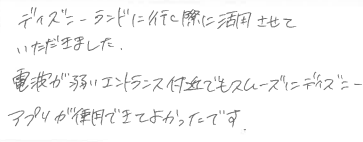 ディズニーランドに行く際に活用させて
いただきました.
電波が弱いエントランス付近でもスムーズにディズニー
アプリが使用できてよかったです.